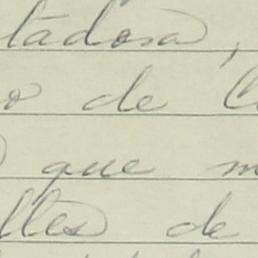 tadora,
o de
que m
ltes de